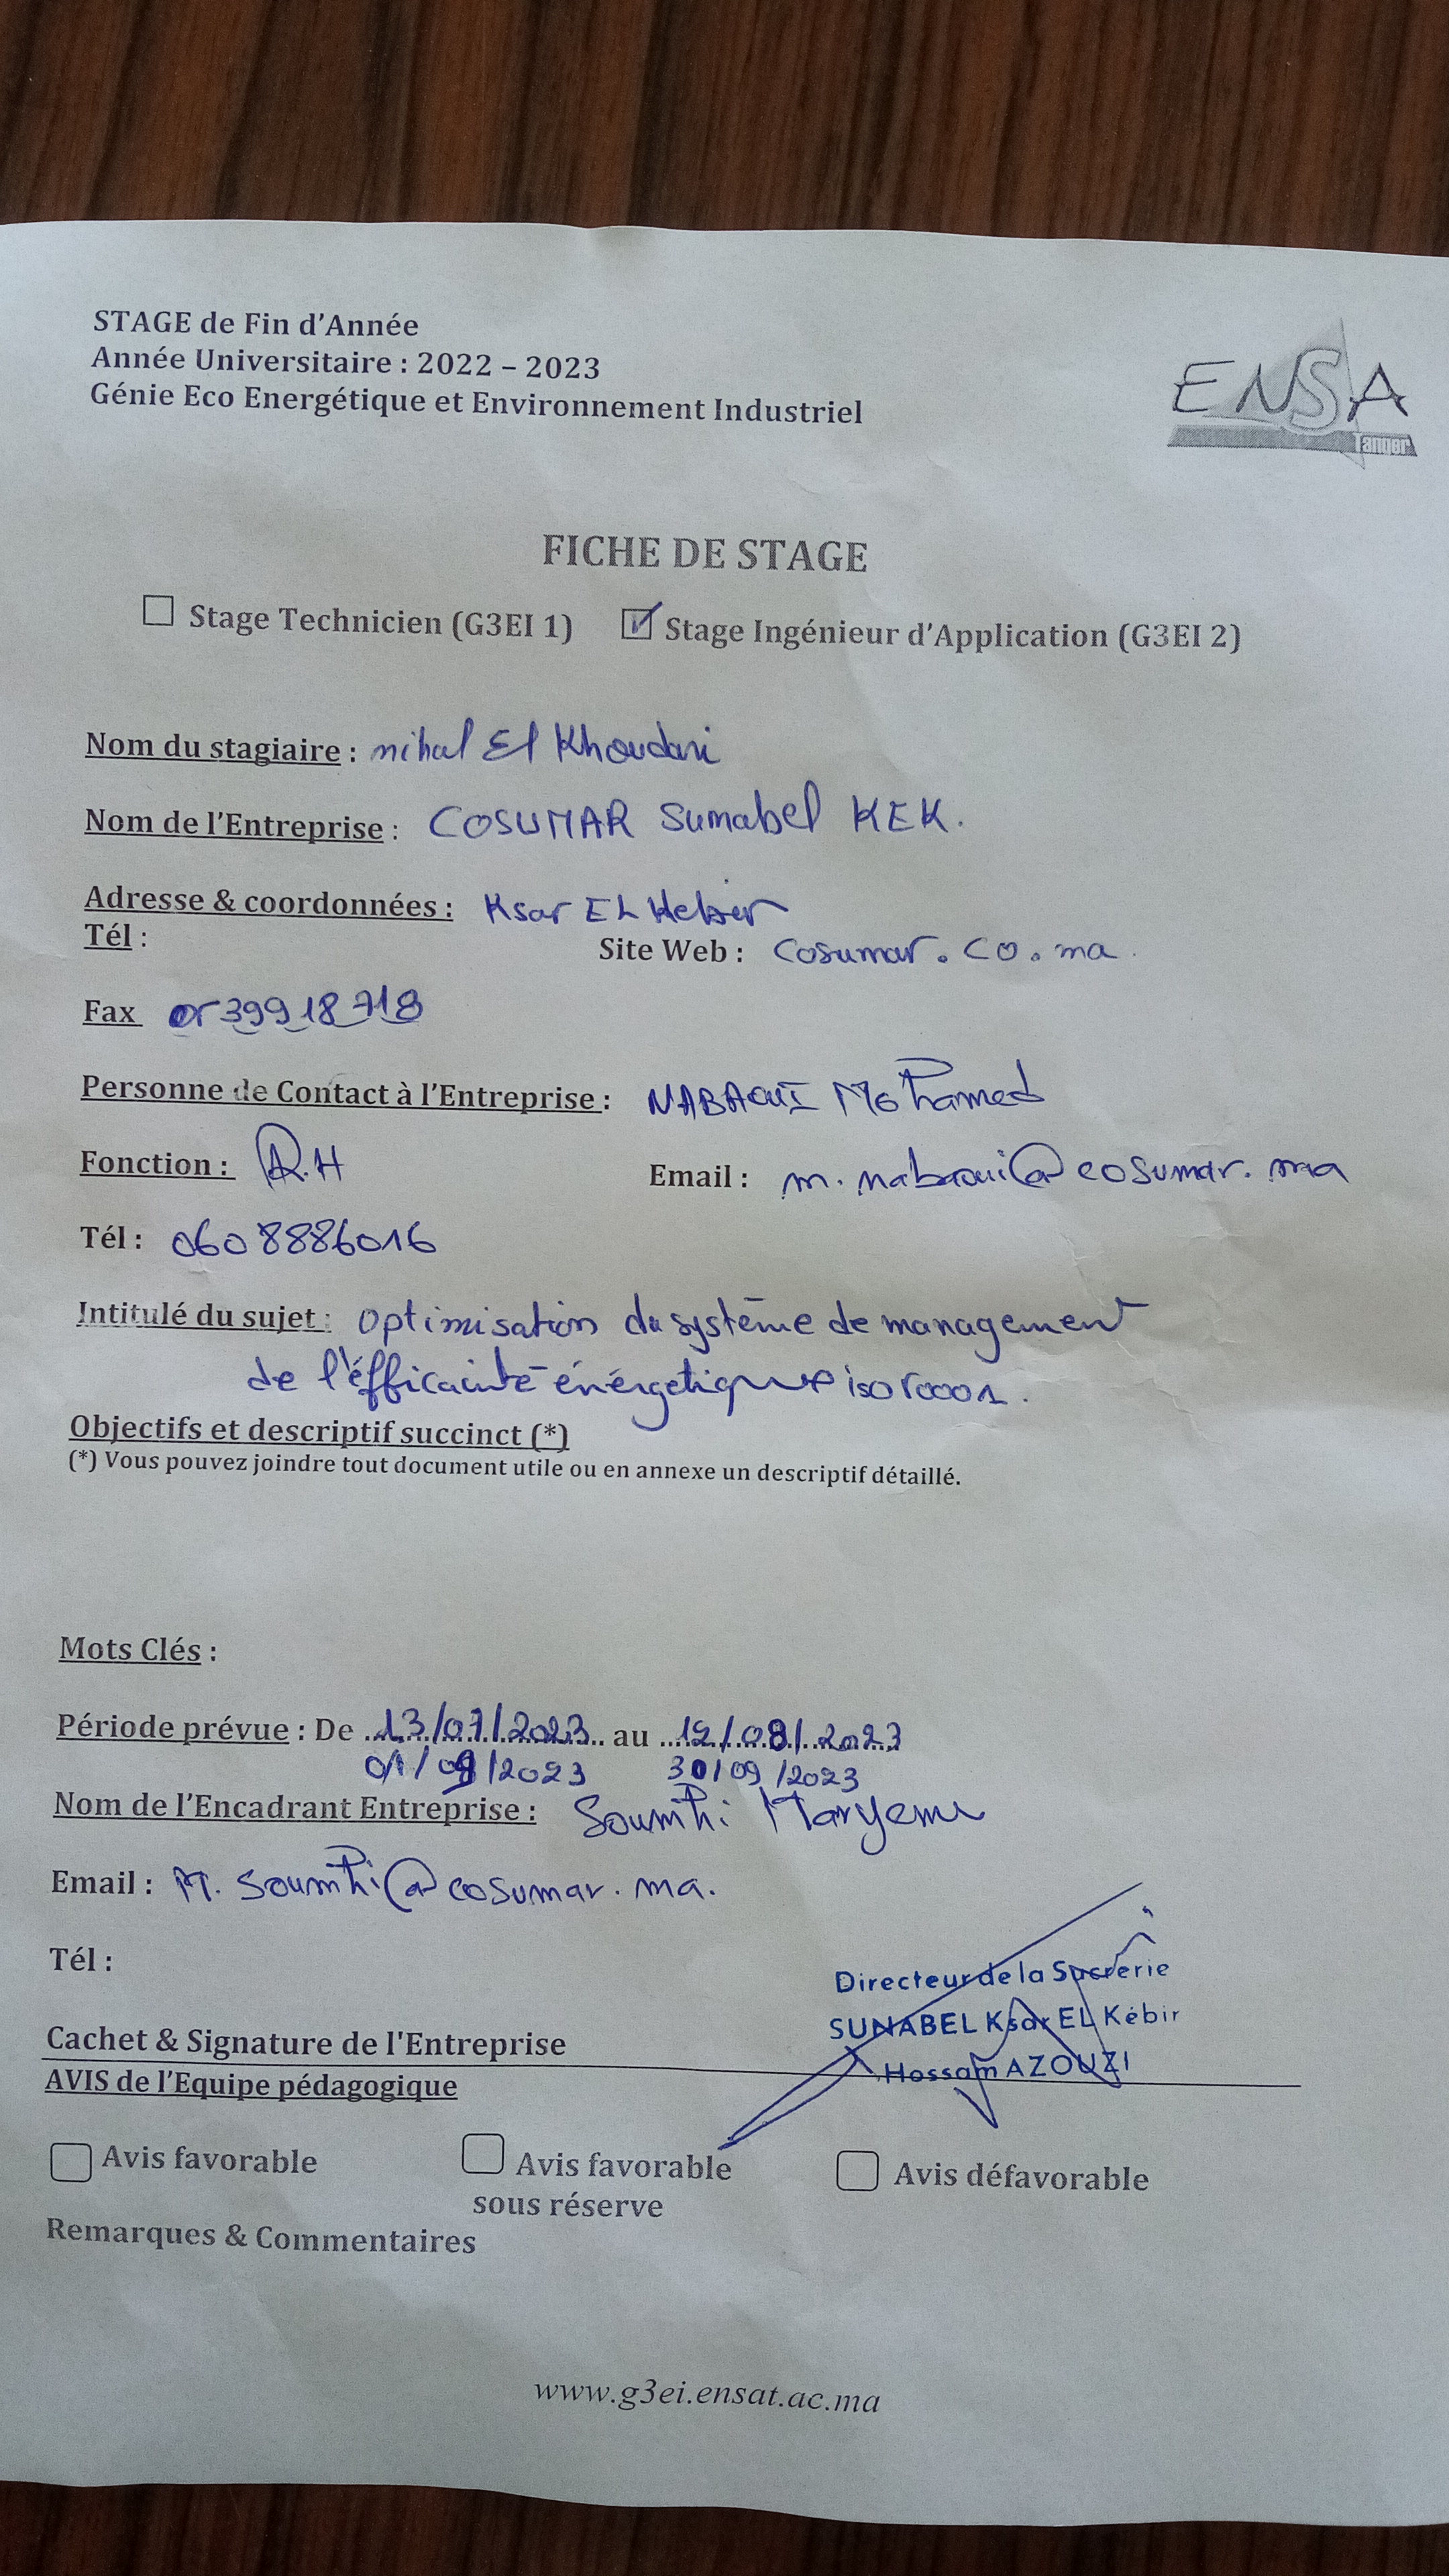 STAGE de Fin d'Année
Année Universitaire : 2022 – 2023
Génie Eco Energétique et Environnement Industriel
ENSA
Tanger
FICHE DE STAGE
Stage Technicien (G3EI 1) Stage Ingénieur d'Application (G3EI 2)
Nom du stagiaire : nihal El Khoudari
Nom de l'Entreprise : COSUMAR Sunabel KEK.
Adresse & coordonnées : Ksar EL Kebir
Tél : Site Web : Cosumar.co.ma
Fax 0539918718
Personne de Contact à l'Entreprise : NABAOUI Mohamed
Fonction : R.H Email : m.nabaoui@cosumar.ma
Tél : 0608886016
Intitulé du sujet : Optimisation du système de management
de l'éfficacité énérgetique iso 50001.
Objectifs et descriptif succinct (*)
(*) Vous pouvez joindre tout document utile ou en annexe un descriptif détaillé.
Mots Clés :
Période prévue : De 13/07/2023 au 12/08/2023
01/09/2023 30/09/2023
Nom de l'Encadrant Entreprise : Soumhi Maryem
Email : M.Soumhi@cosumar.ma.
Tél :
Directeur de la Sucrerie
SUNABEL Ksar EL Kébir
Hossam AZOUZI
Cachet & Signature de l'Entreprise
AVIS de l'Equipe pédagogique
Avis favorable Avis favorable Avis défavorable
sous réserve
Remarques & Commentaires
www.g3ei.ensat.ac.ma